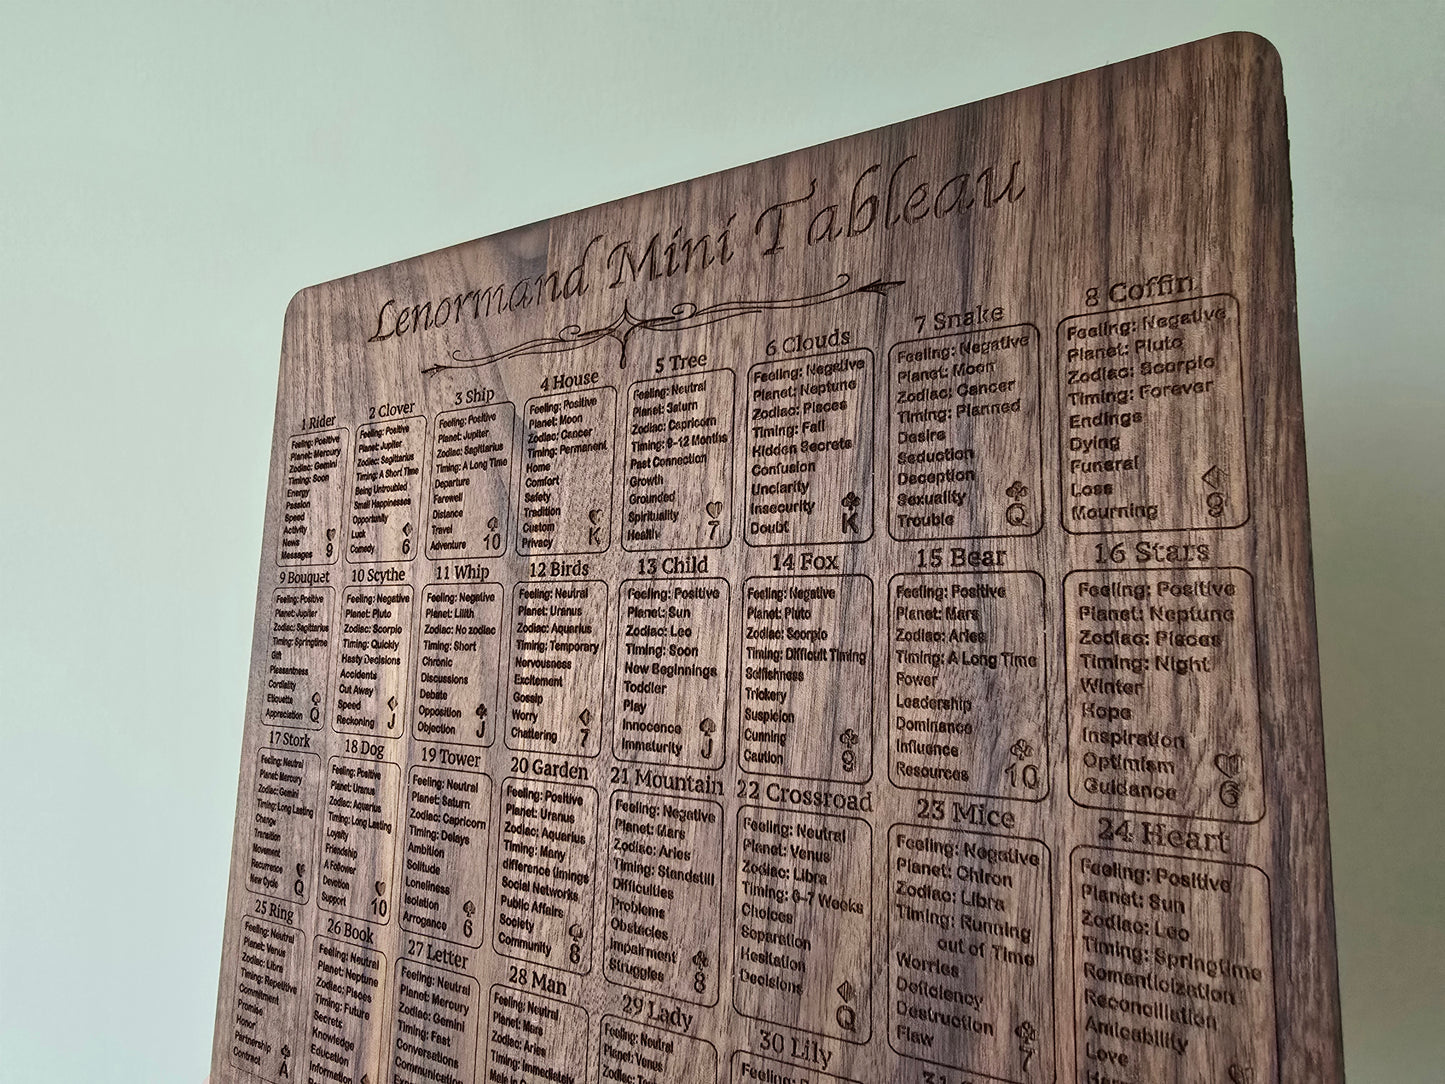 Lenormand Mini Tableau
1 Rider
Feeling: Positive
Planet: Mercury
Zodiac: Gemini
Timing: Soon
Energy
Passion
Speed
Activity
News
Messages
9
2 Clover
Feeling: Positive
Planet: Jupiter
Zodiac: Sagittarius
Timing: A Short Time
Being Untroubled
Small Happinesses
Opportunity
Luck
Comedy
6
3 Ship
Feeling: Positive
Planet: Jupiter
Zodiac: Sagittarius
Timing: A Long Time
Departure
Farewell
Distance
Travel
Adventure
10
4 House
Feeling: Positive
Planet: Moon
Zodiac: Cancer
Timing: Permanent
Home
Comfort
Safety
Tradition
Custom
Privacy
K
5 Tree
Feeling: Neutral
Planet: Saturn
Zodiac: Capricorn
Timing: 9-12 Months
Past Connection
Growth
Grounded
Spirituality
Health
7
6 Clouds
Feeling: Negative
Planet: Neptune
Zodiac: Pisces
Timing: Fall
Hidden Secrets
Confusion
Unclarity
Insecurity
Doubt
K
7 Snake
Feeling: Negative
Planet: Moon
Zodiac: Cancer
Timing: Planned
Desire
Seduction
Deception
Sexuality
Trouble
Q
8 Coffin
Feeling: Negative
Planet: Pluto
Zodiac: Scorpio
Timing: Forever
Endings
Dying
Funeral
Loss
Mourning
9
9 Bouquet
Feeling: Positive
Planet: Jupiter
Zodiac: Sagittarius
Timing: Springtime
Gift
Pleasantness
Cordiality
Etiquette
Appreciation
Q
10 Scythe
Feeling: Negative
Planet: Pluto
Zodiac: Scorpio
Timing: Quickly
Hasty Decisions
Accidents
Cut Away
Speed
Reckoning
J
11 Whip
Feeling: Negative
Planet: Lilith
Zodiac: No zodiac
Timing: Short
Chronic
Discussions
Debate
Opposition
Objection
J
12 Birds
Feeling: Neutral
Planet: Uranus
Zodiac: Aquarius
Timing: Temporary
Nervousness
Excitement
Gossip
Worry
Chattering
7
13 Child
Feeling: Positive
Planet: Sun
Zodiac: Leo
Timing: Soon
New Beginnings
Toddler
Play
Innocence
Immaturity
J
14 Fox
Feeling: Negative
Planet: Pluto
Zodiac: Scorpio
Timing: Difficult Timing
Selfishness
Trickery
Suspicion
Cunning
Caution
9
15 Bear
Feeling: Positive
Planet: Mars
Zodiac: Aries
Timing: A Long Time
Power
Leadership
Dominance
Influence
Resources
10
16 Stars
Feeling: Positive
Planet: Neptune
Zodiac: Pisces
Timing: Night
Winter
Hope
Inspiration
Optimism
Guidance
6
17 Stork
Feeling: Neutral
Planet: Mercury
Zodiac: Gemini
Timing: Long Lasting
Change
Transition
Movement
Recurrence
New Cycle
Q
18 Dog
Feeling: Positive
Planet: Uranus
Zodiac: Aquarius
Timing: Long Lasting
Loyalty
Friendship
A Follower
Devotion
Support
10
19 Tower
Feeling: Neutral
Planet: Saturn
Zodiac: Capricorn
Timing: Delays
Ambition
Solitude
Loneliness
Isolation
Arrogance
6
20 Garden
Feeling: Positive
Planet: Uranus
Zodiac: Aquarius
Timing: Many
difference timings
Social Networks
Public Affairs
Society
Community
8
21 Mountain
Feeling: Negative
Planet: Mars
Zodiac: Aries
Timing: Standstill
Difficulties
Problems
Obstacles
Impairment
Struggles
8
22 Crossroad
Feeling: Neutral
Planet: Venus
Zodiac: Libra
Timing: 6-7 Weeks
Choices
Separation
Hesitation
Decisions
Q
23 Mice
Feeling: Negative
Planet: Chiron
Zodiac: Libra
Timing: Running
out of Time
Worries
Deficiency
Destruction
Flaw
7
24 Heart
Feeling: Positive
Planet: Sun
Zodiac: Leo
Timing: Springtime
Romanticization
Reconciliation
Amicability
Love
25 Ring
Feeling: Neutral
Planet: Venus
Zodiac: Libra
Timing: Repetitive
Commitment
Promise
Honor
Partnership
Contract
A
26 Book
Feeling: Neutral
Planet: Neptune
Zodiac: Pisces
Timing: Future
Secrets
Knowledge
Education
Information
27 Letter
Feeling: Neutral
Planet: Mercury
Zodiac: Gemini
Timing: Fast
Conversations
Communication
28 Man
Feeling: Neutral
Planet: Mars
Zodiac: Aries
Timing: Immediately
29 Lady
Feeling: Neutral
Planet: Venus
30 Lily
Feeling: